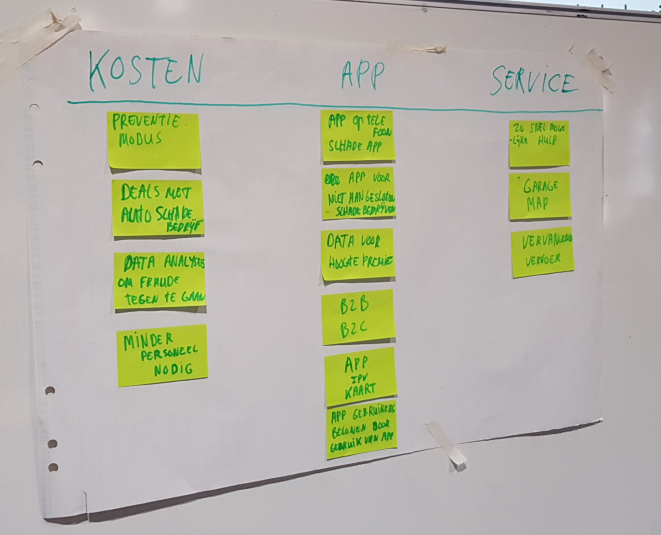 KOSTEN
PREVENTIE
MODUS
DEALS MET
AUTO SCHADE
BEDRIJF
DATA ANALYSES
OM FRAUDE
TEGEN TE GAAN
MINDER
PERSONEEL
NODIG
APP
APP OP TELE
FOON
SCHADE APP
APP VOOR
NIET AANGESLOTEN
SCHADEBEDRIJVEN
DATA VOOR
HOOGTE PREMIE
B2B
B2C
APP
IPV
KAART
APP GEBRUIKERS
BELONEN DOOR
GEBRUIK VAN APP
SERVICE
ZO SNEL MOGE
-LIJKE HULP
GARAGE
MAP
VERVANGEND
VERVOER